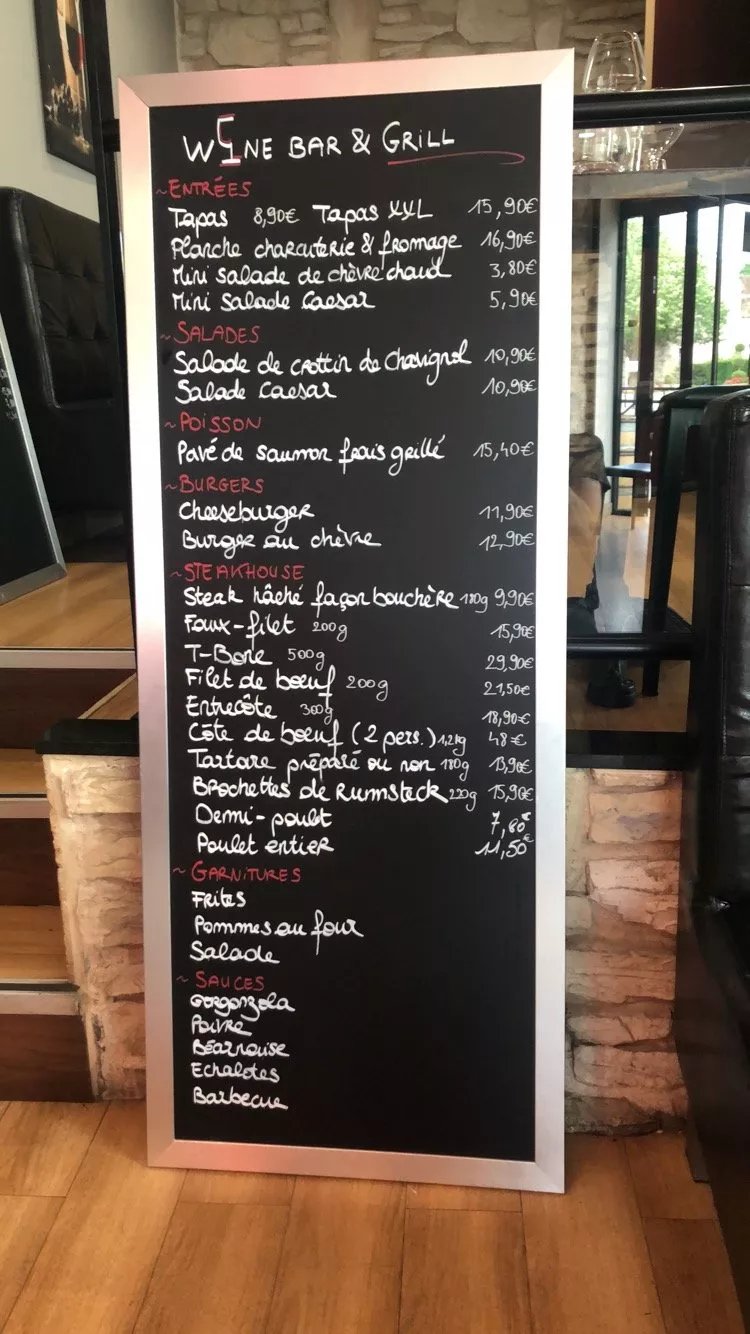 WINE BAR & GRILL
~ENTRÉES
Tapas 8,90€ Tapas XXL 15,90€
Planche charcuterie & fromage 16,90€
Mini salade de chèvre chaud 3,80€
Mini Salade Caesar 5,90€
~SALADES
Salade de crottin de Chavignol 10,90€
Salade Caesar 10,90€
~POISSON
Pavé de saumon frais grillé 15,40€
~BURGERS
Cheeseburger 11,90€
Burger au chèvre 12,90€
~STEAKHOUSE
Steak hâché façon bouchère 180g 9,90€
Faux-filet 200g 15,90€
T-Bone 500g 29,90€
Filet de boeuf 200g 21,50€
Entrecôte 300g 18,90€
Côte de boeuf (2 pers.) 1,2kg 48€
Tartare préparé ou non 180g 13,90€
Brochettes de Rumsteck 220g 15,90€
Demi-poulet 7,80€
Poulet entier 11,50€
~GARNITURES
Frites
Pommes au four
Salade
~SAUCES
Gorgonzola
Poivre
Béarnaise
Echalotes
Barbecue